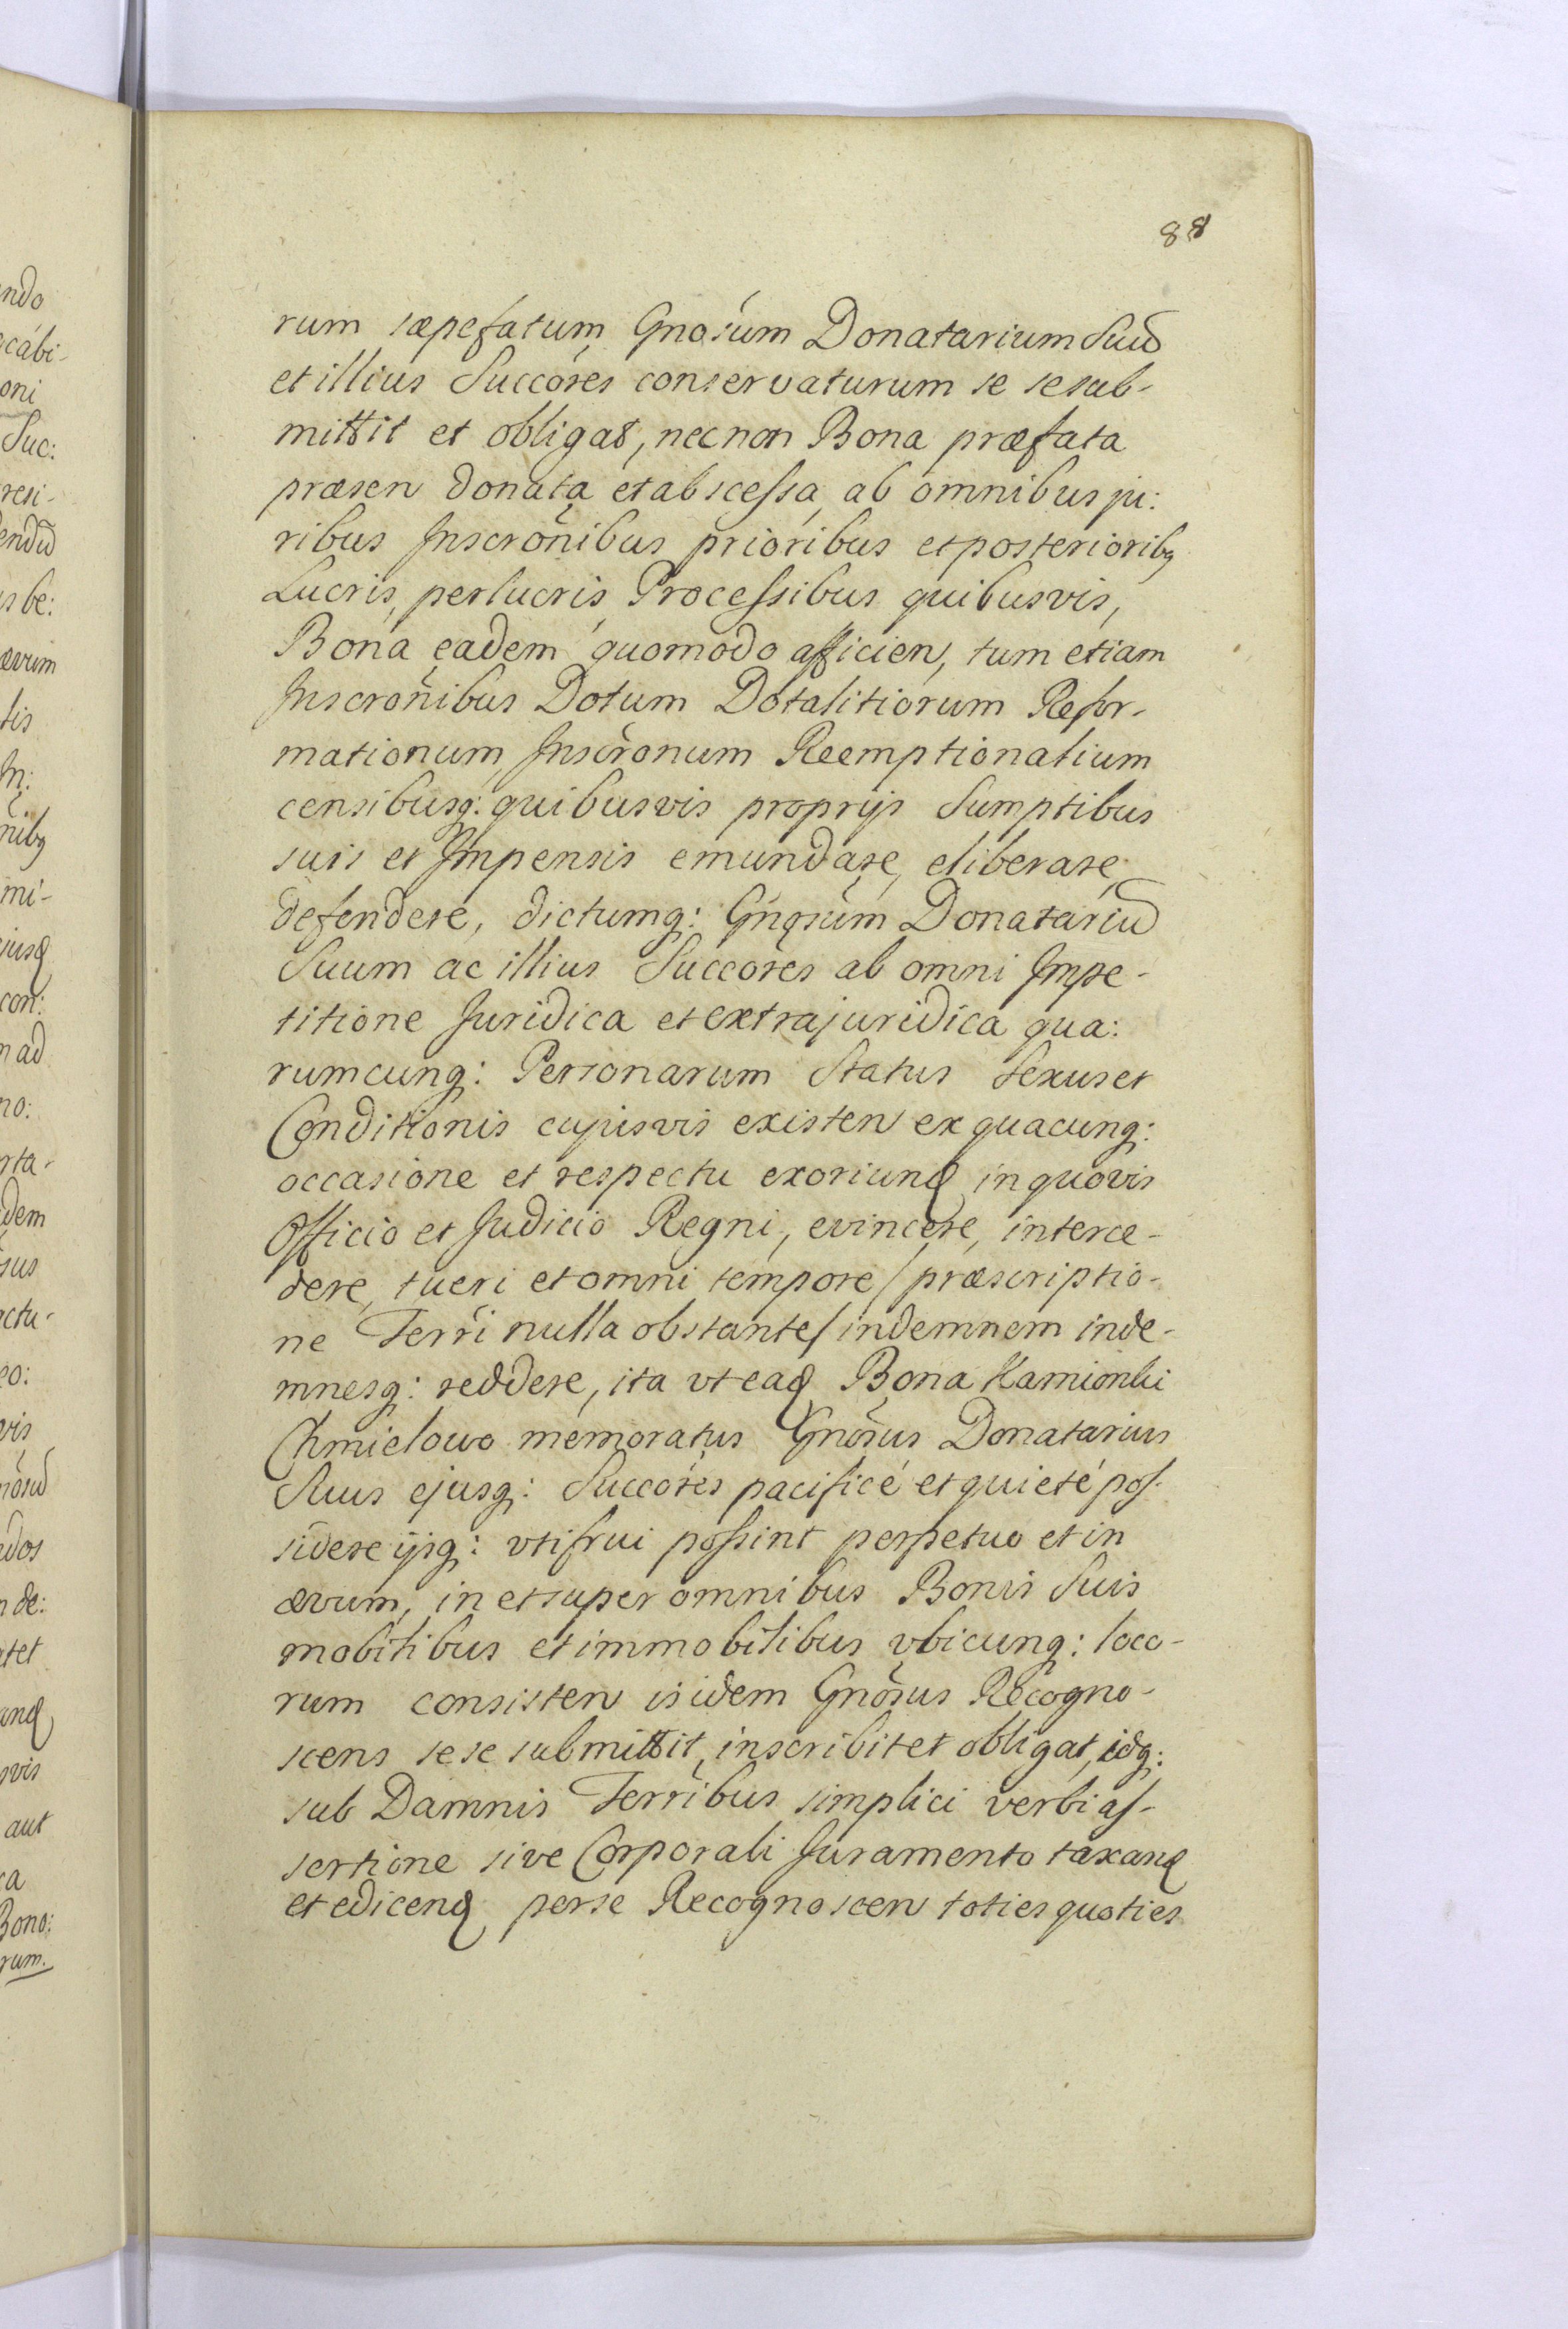 88
rum sæpefatum Gnosum Donatarium Suũ
et illius Succores conservaturum se se sub-
mittit et obligat, necnon Bona præfata
præsen donata et abscessa, ab omnibus ju:
ribus Inscronibus prioribus et posterioribq
Lucris, perlucris, Processibus quibusvis,
Bona eadem quomodo afficien, tum etiam
Inscronibus Dotum Dotalitiorum Refor-
mationum, Inscronum Reemptionalium
censibusq: quibusvis proprijs Sumptibus
suis et Impensis emundare, eliberare,
defendere, dictumq: Gnosum Donatariũ
Suum ac illius Succores ab omni Impe-
titione Juridica et extrajuridica qua:
rumcunq: Personarum Status Sexus et
Conditionis cujusvis existen ex quacunq:
occasione et respectu exoriunđ, in quovis
Officio et Judicio Regni, evincere, interce-
dere, tueri et omni tempore / præscriptio-
ne Terri nulla obstante / indemnem inde-
mnesq: reddere, ita vt eađ Bona Kamionki
Chmielowo memoratus Gnosus Donatarius
Suus ejusq: Succores pacificé et quieté pos-
sidere ijsq: vtifrui possint perpetuo et in
ævum, in et super omnibus Bonis Suis
mobilibus et immobilibus vbicunq: loco-
rum consisten isidem Gnosus Recogno-
scens sese submittit, inscribit et obligat, idq:
sub Damnis Terribus, simplici verbi as-
sertione sive Corporali Juramento taxanđ
et edicenđ, per se Recognoscen toties quoties